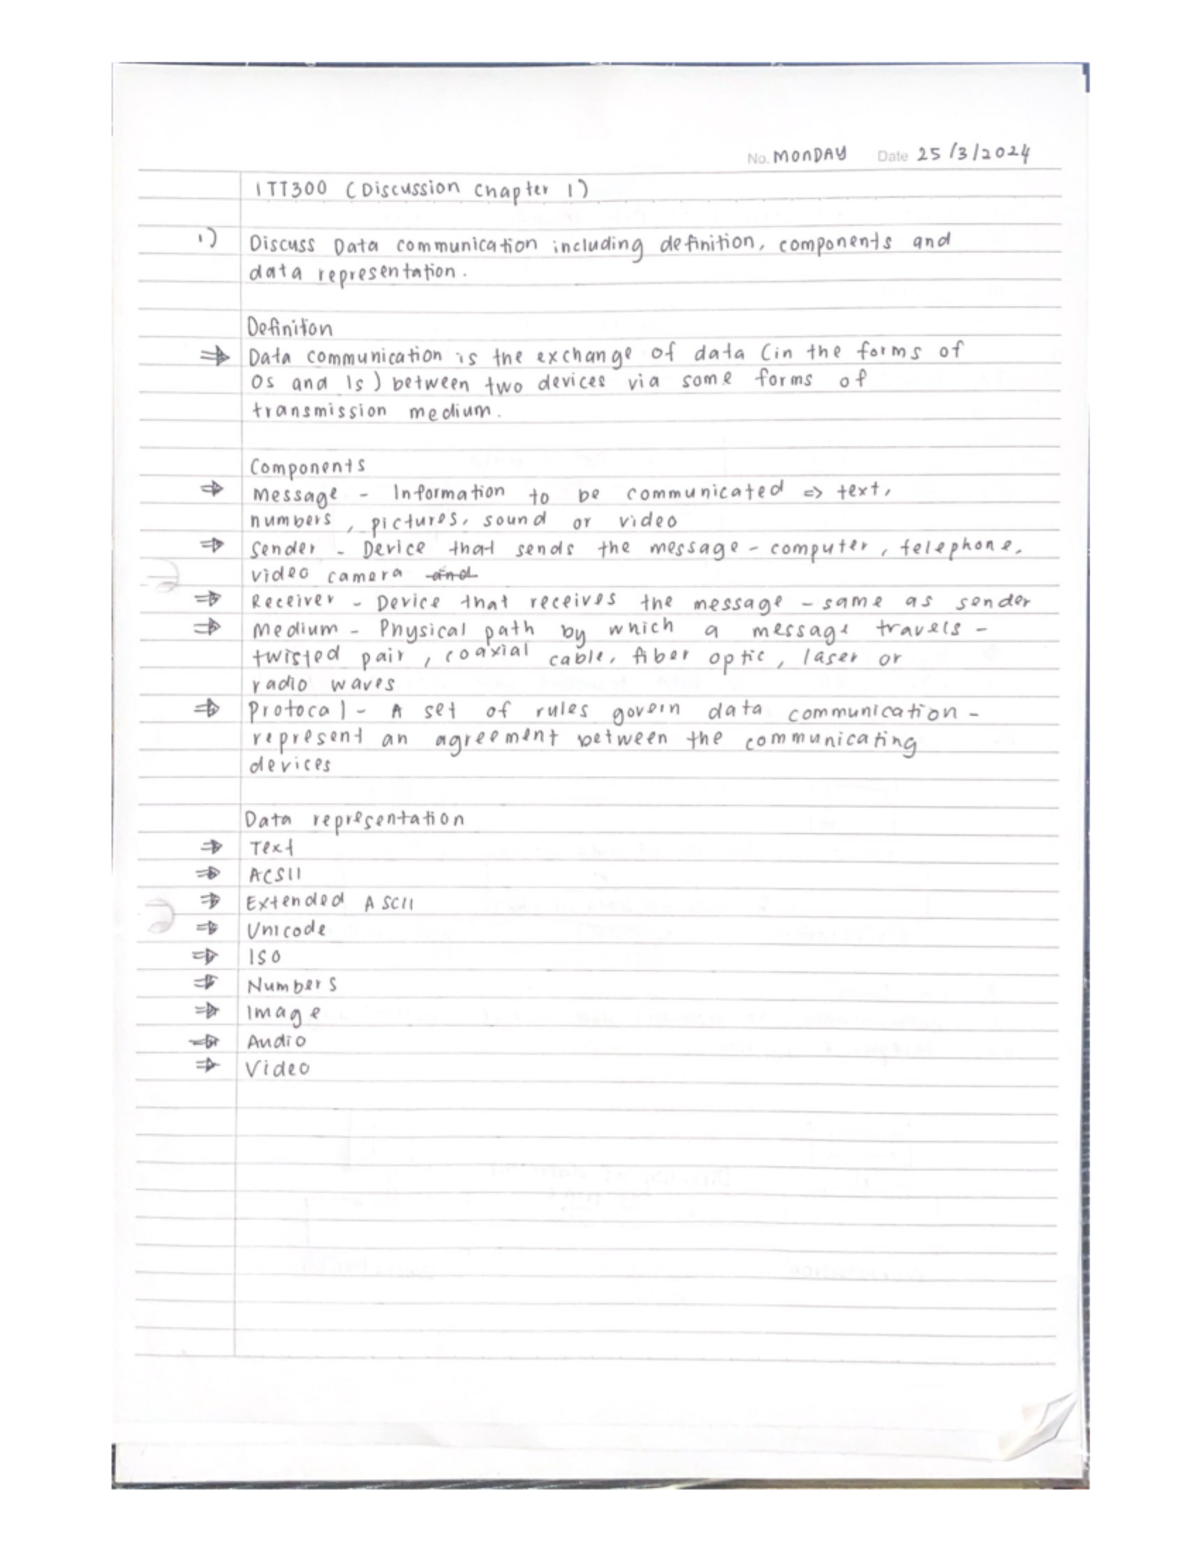 No. MONDAY Date 25/3/2024
ITT300 (Discussion Chapter 1)
1) Discuss Data communication including definition, components and
data representation.
Definition
⇒ Data communication is the exchange of data (in the forms of
0s and 1s) between two devices via some forms of
transmission medium.
Components
⇒ Message - Information to be communicated => text,
numbers, pictures, sound or video
⇒ Sender - Device that sends the message - computer, telephone,
video camera and
⇒ Receiver - Device that receives the message - same as sender
⇒ Medium - Physical path by which a message travels -
twisted pair, coaxial cable, fiber optic, laser or
radio waves
⇒ Protocal - A set of rules govern data communication -
represent an agreement between the communicating
devices
Data representation
⇒ Text
⇒ ACSII
⇒ Extended ASCII
⇒ Unicode
⇒ ISO
⇒ Numbers
⇒ Image
⇒ Audio
⇒ Video